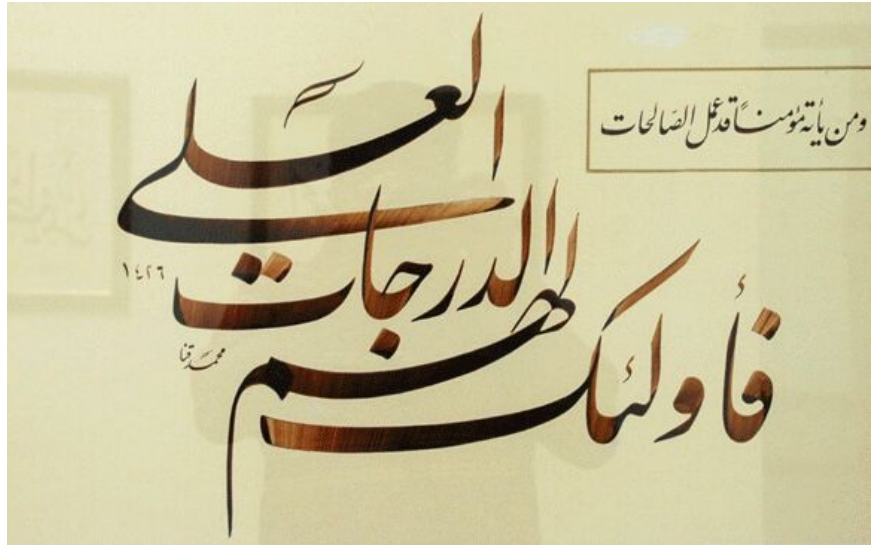 ومن يأته مؤمناً قد عمل الصّالحات
فأولئك لهم
الدرجات
العلى
١٤٢٦
محمد قنا